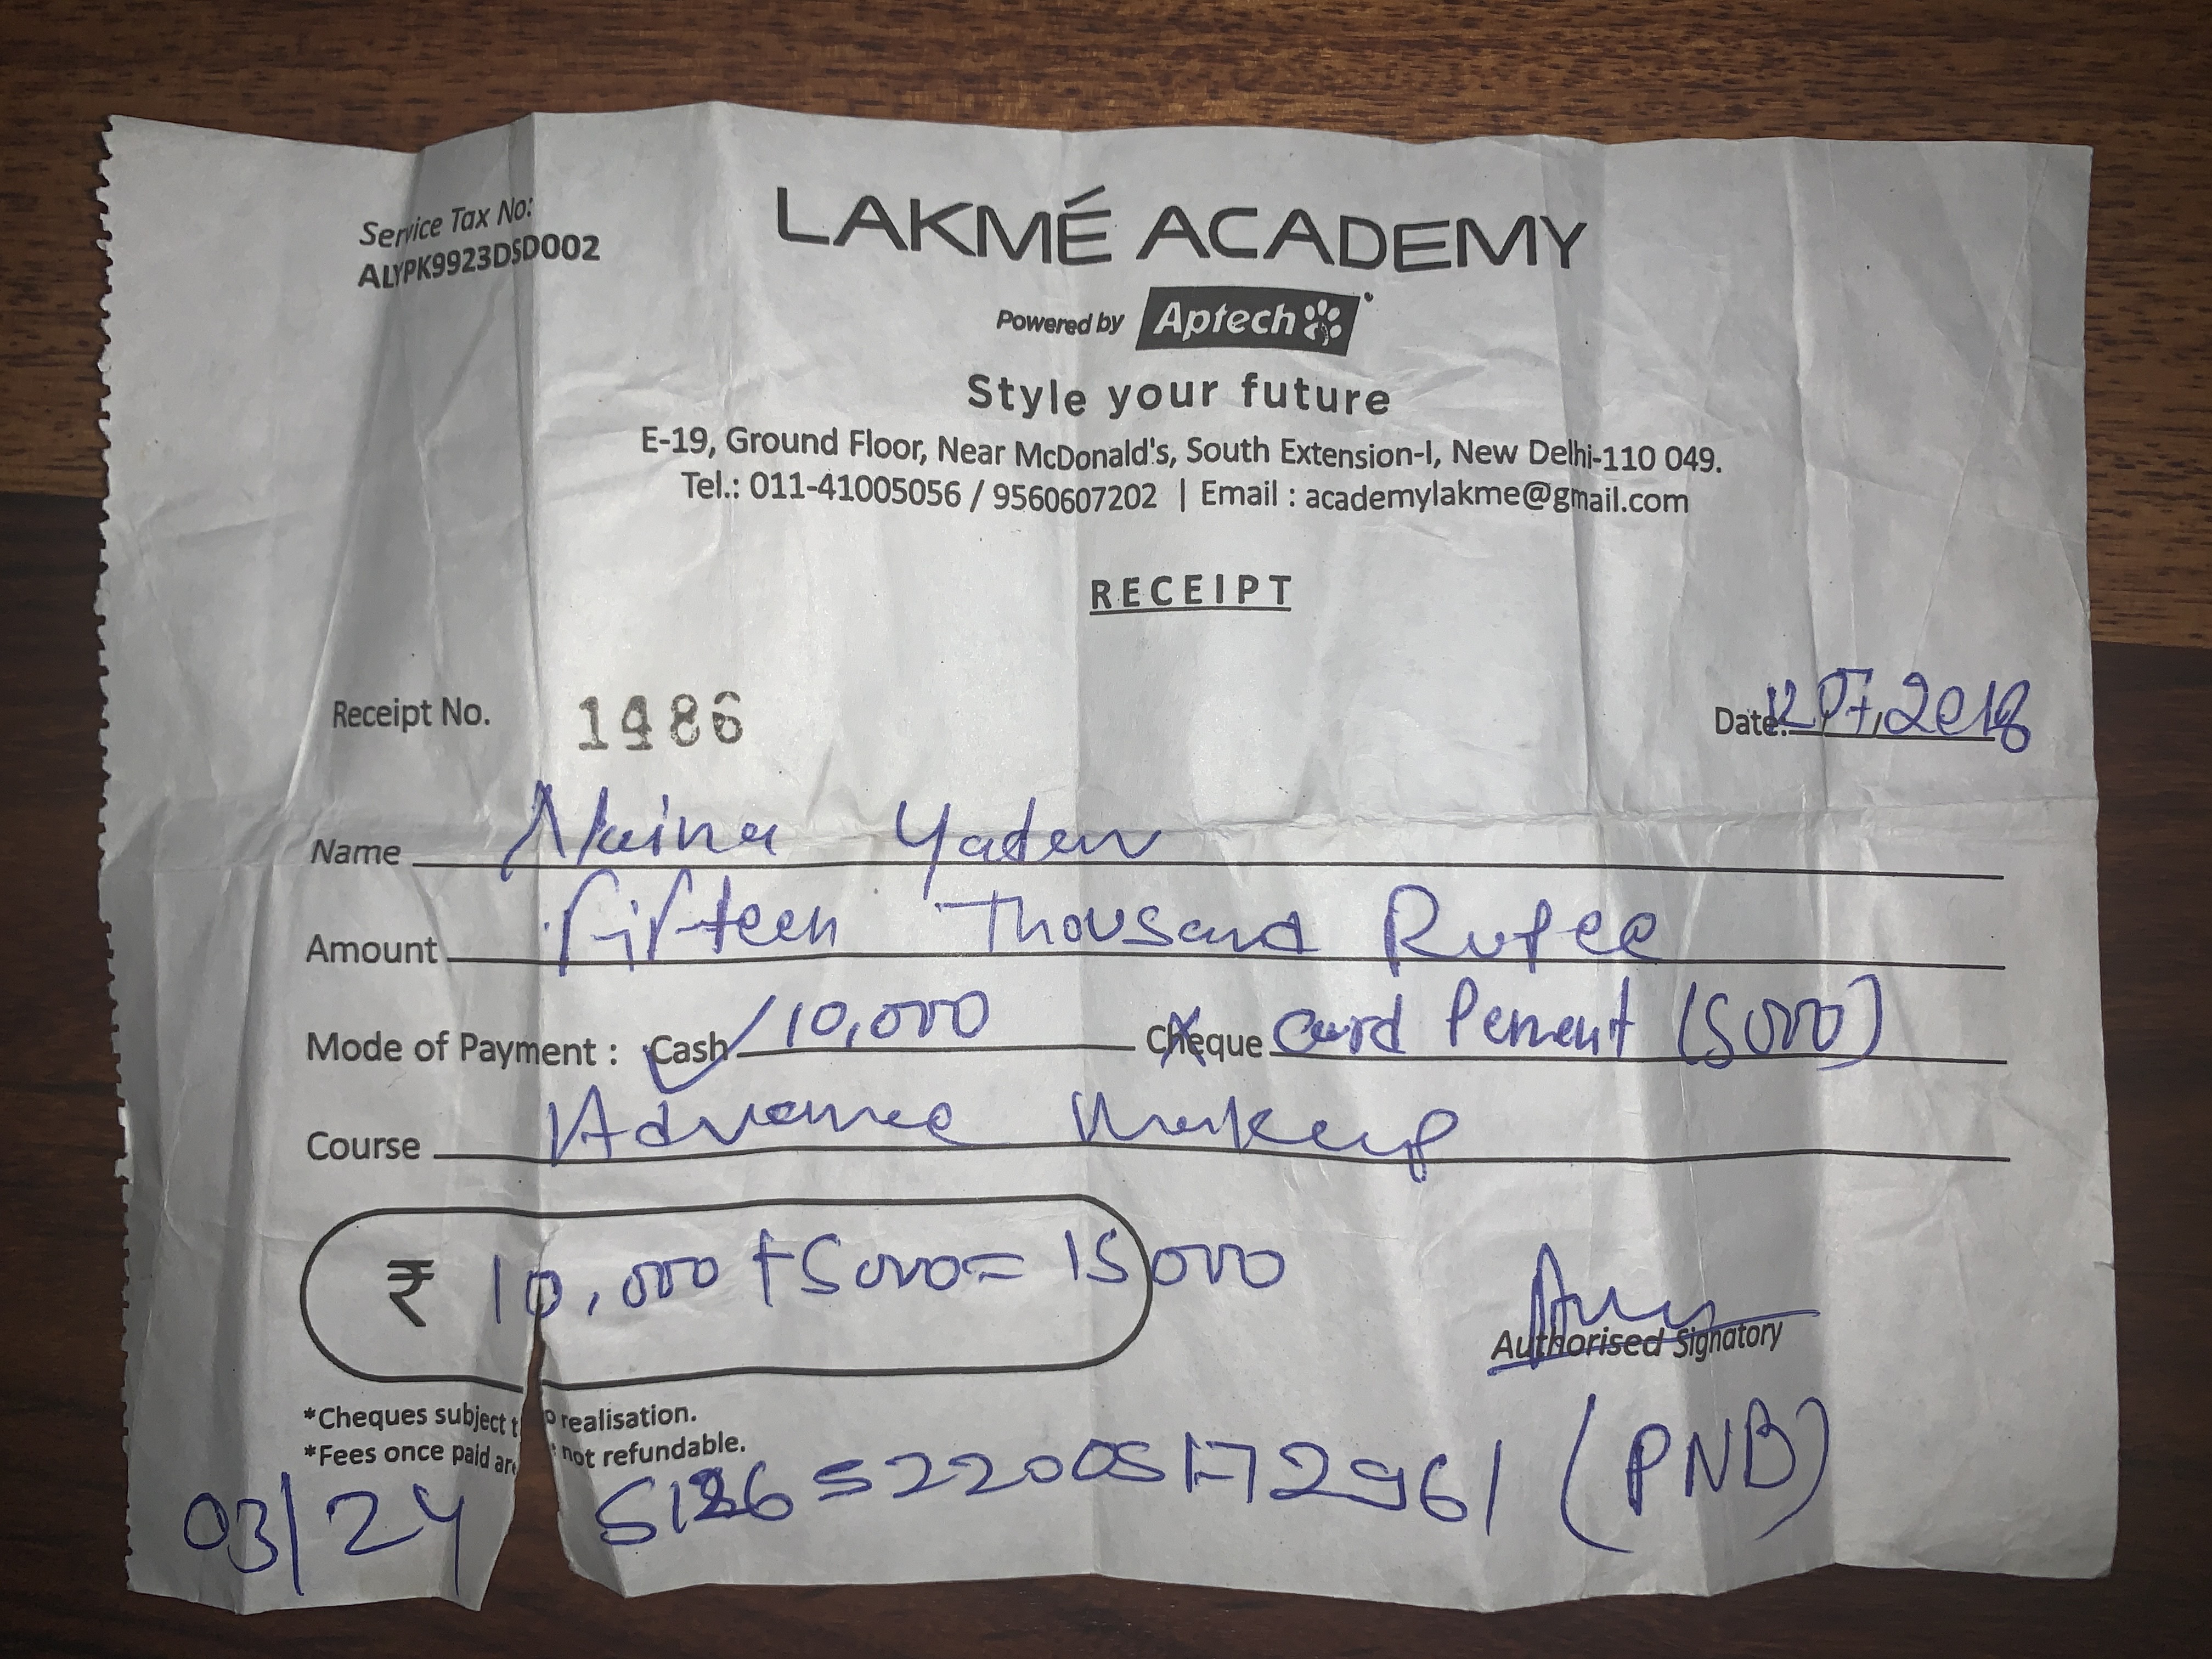 Service Tax No:
ALYPK9923DSD002
LAKMÉ ACADEMY
Powered by Aptech
Style your future
E-19, Ground Floor, Near McDonald's, South Extension-I, New Delhi-110 049.
Tel.: 011-41005056 / 9560607202 | Email : academylakme@gmail.com
RECEIPT
Receipt No. 1486
Date: 12.07.2018
Name Naina Yadav
Amount Fifteen Thousand Rupee
Mode of Payment : Cash 10,000 Cheque Card Pement (5000)
Course Advance Makeup
₹ 10,000 + 5000 = 15000
Authorised Signatory
*Cheques subject to realisation.
*Fees once paid are not refundable.
03/24 (PNB)